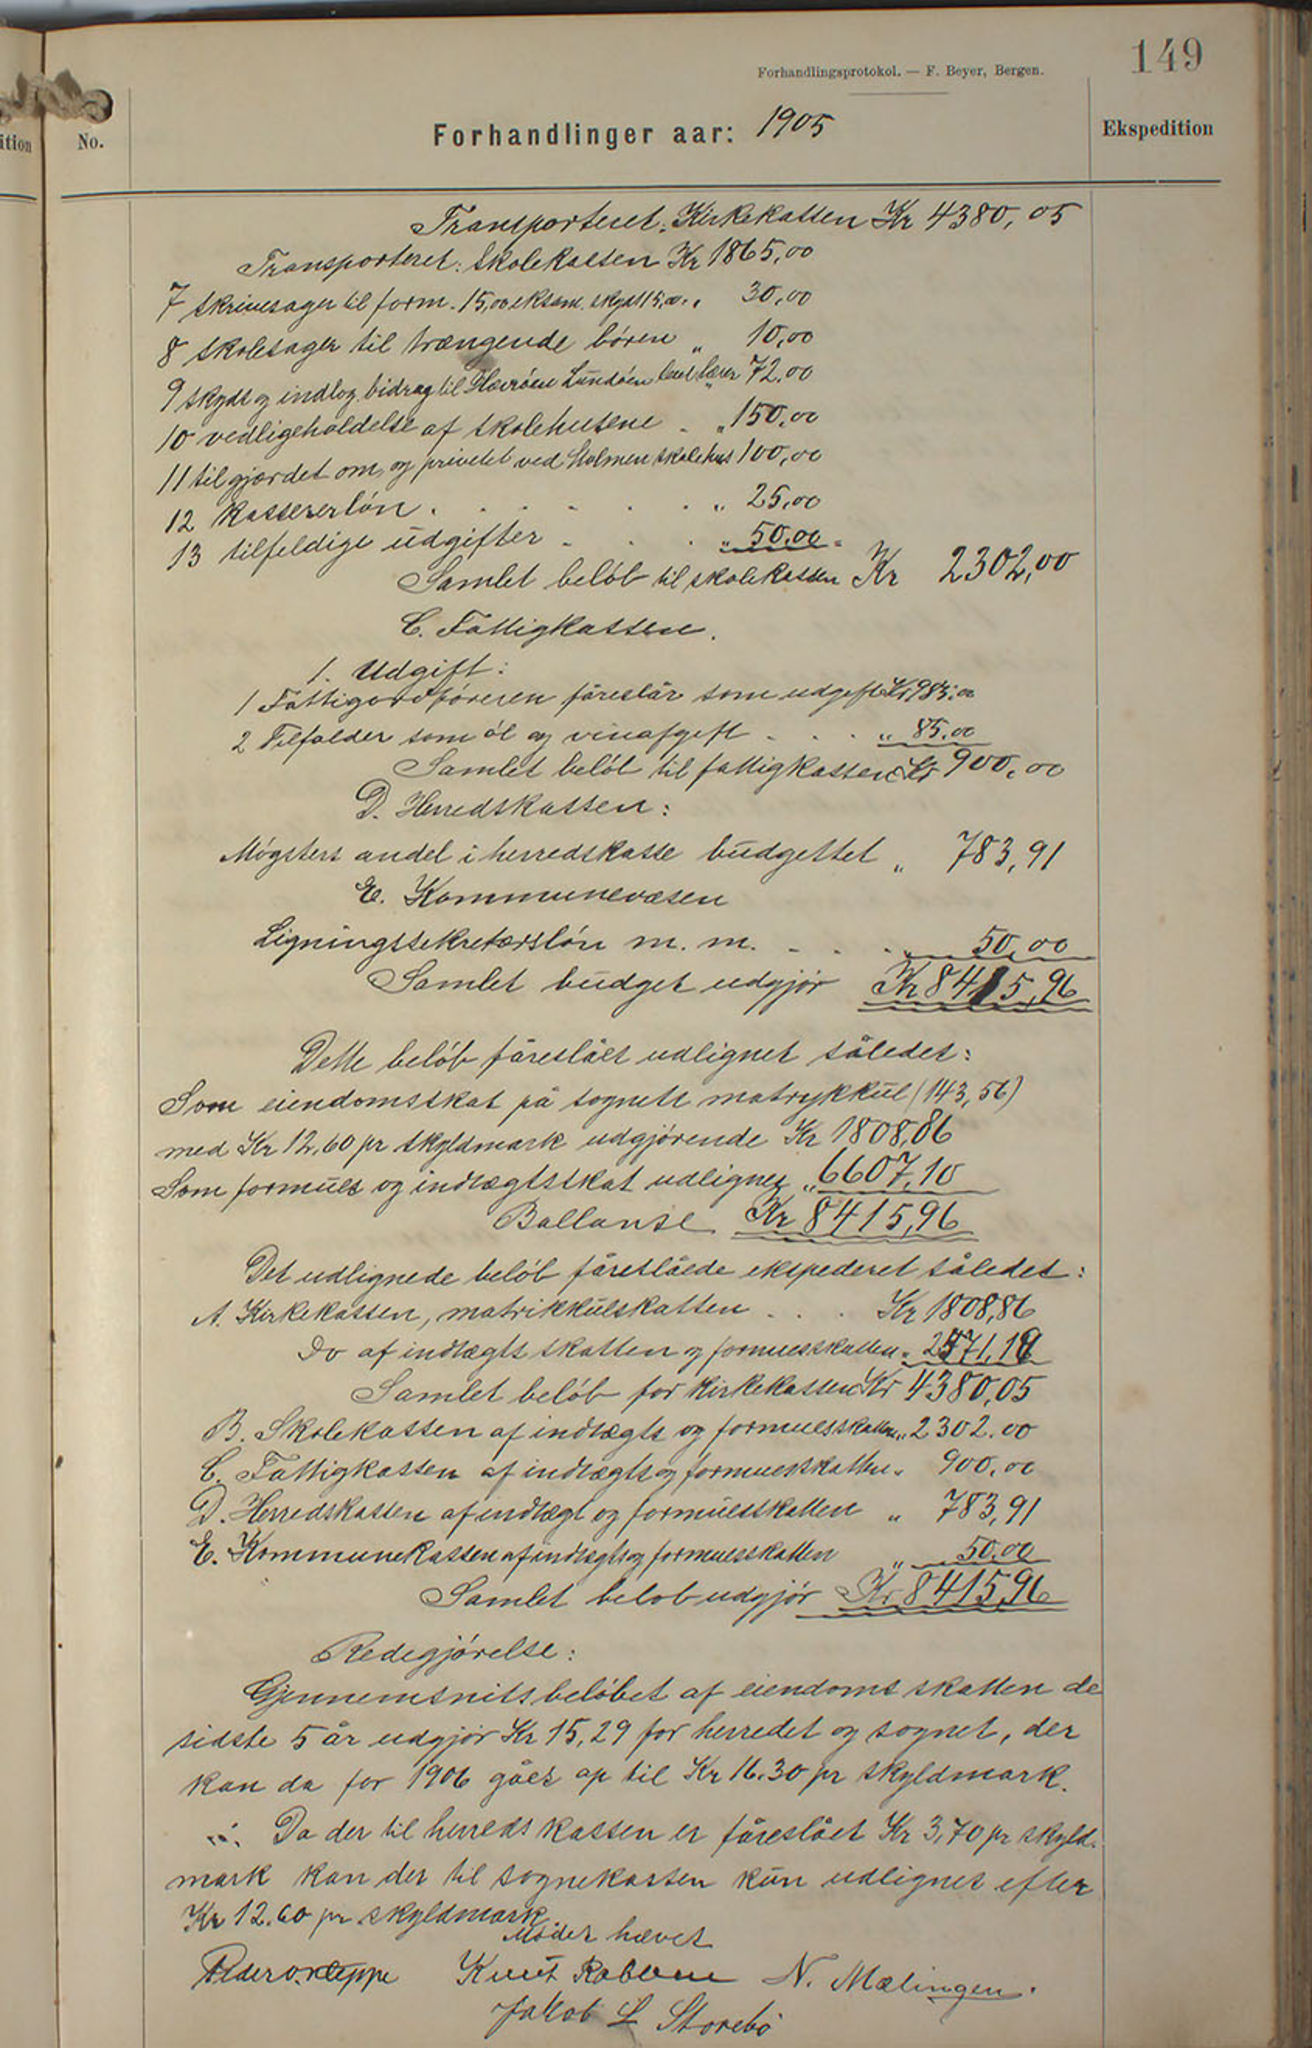 149
Forhandlingsprotokol. — F. Beyer, Bergen.
No.
Forhandlinger aar: 1905
Ekspedition
Transporteret: Kirkekassen Kr 4380,05
Transporteret: Skolekassen Kr 1865,00
7 skrivesager til form. 15,00 eksam. skyds 15,00 „ 30,00
8 skolesager til trængende børen „ 10,00
9 skyds og indlog. bidrag til Lundøen 72,00
10 vedligeholdelse af skolehusene - „ 150,00
11 til gjærdet om og privetet ved Stolmen skolehus 100,00
12 Kassererløn . . . . . „ 25,00
13 tilfeldige udgifter - . . „ 50,00
Samlet beløb til skolekassen Kr 2302,00
C. Fattigkassen.
1. Udgift:
1 Fattigordføreren føreslår som udgift Kr 985,00
2 Tilfalder som øl og vinafgift - . . „ 85,00
Samlet beløb til fattigkassen Kr 900,00
D. Herredskassen:
Møgsters andel i herredskasse budgettet „ 783,91
E. Kommunevæsen
Ligningssekretærsløn m. m. - . . „ 50,00
Samlet budget udgjør Kr 8415,96
Dette beløb føreslåes udlignet således:
Som eiendomsskat på sognets matrykkül (143,56)
med Kr 12,60 pr skyldmark udgjørende Kr 1808,86
Som formues og indtægtsskat udlignes „ 6607,10
Ballanse Kr 8415,96
Det udlignede beløb føreslåede ekspederet således:
A. Kirkekassen, matrikkülskatten . . . Kr 1808,86
Do af indtægts skatten og formuesskatten „ 2571,19
Samlet beløb for kirkekassen Kr 4380,05
B. Skolekassen af indtægts og formuesskatten „ 2302.00
C. Fattigkassen af indtægts og formuesskatten „ 900,00
D. Herredskassen af indtægt og formuesskatten „ 783,91
E. Kommunekassen af indtægts og formuesskatten „ 50.00
Samlet beløb udgjør Kr 8415,96
Redegjørelse:
Gjennemsnitsbeløbet af eiendoms skatten de
sidste 5 år udgjør Kr 15,29 for herredet og sognet, der
kan da for 1906 gåes op til Kr 16.30 pr skyldmark.
Da der til herreds kassen er føreslået Kr 3,70 pr skyld-
mark kan der til sognekassen kün udlignes efter
Kr 12.60 pr skyldmark.
Mødet hævet
Knut Rabben N. Mælingen.
Jakob L Storebø